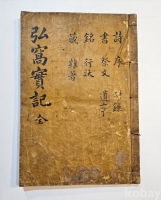 弘窩實記 全
詩 序 附錄
書 祭文 遺事
銘 行狀
箴 雜著
kobay